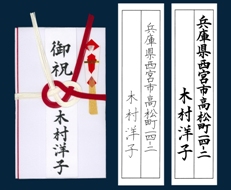 御祝
木村洋子
兵庫県西宮市高松町一四-二
木村洋子
兵庫県西宮市高松町一四-二
木村洋子